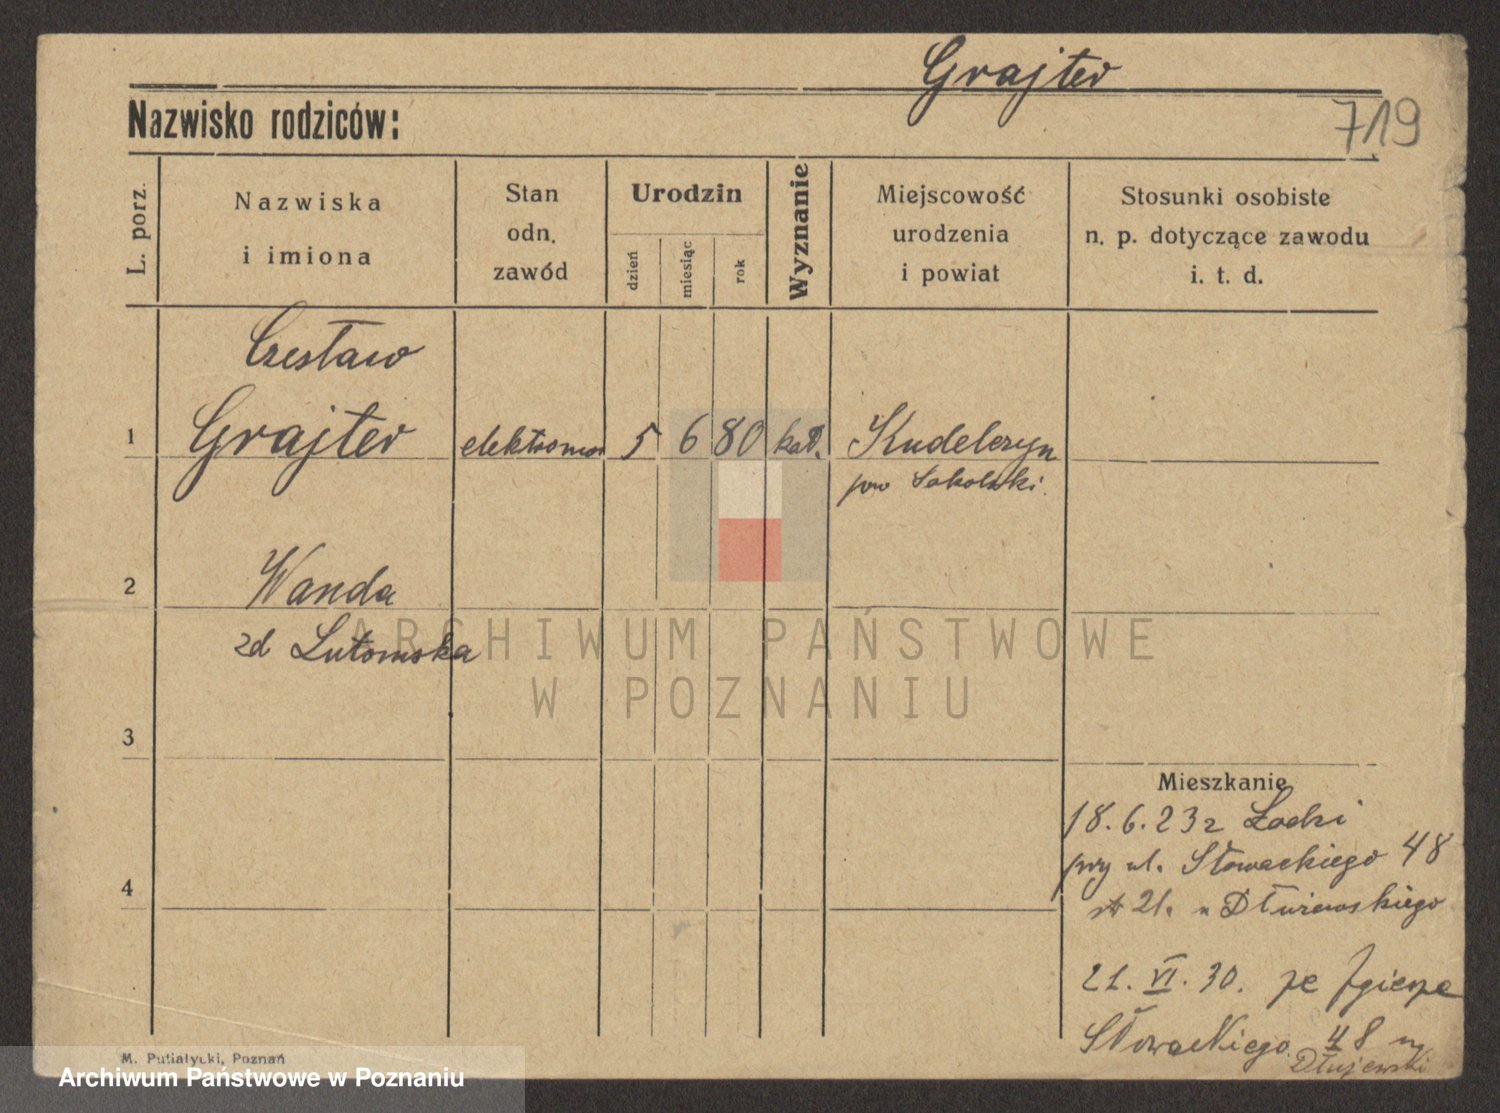 Grajter
719
Nazwisko rodziców:
L. porz.
Nazwiska
i imiona
Stan
odn.
zawód
Urodzin
dzień
miesiąc
rok
Wyznanie
Miejscowość
urodzenia
i powiat
Stosunki osobiste
n. p. dotyczące zawodu
i. t. d.
Czesław
1 Grajter elektromon 5 6 80 kat. Kudelczyn
pow Sokolski.
2 Wanda
zd Lutomska
ARCHIWUM PAŃSTWOWE
W POZNANIU
3
Mieszkanie
18.6.23 z Łodzi
przy ul. Słowackiego 48
4
21. u Dłużewskiego
21. VI. 30. ze Zgierza
Słowackiego 48 m
Dłujewski
M. Putiatycki, Poznań
Archiwum Państwowe w Poznaniu